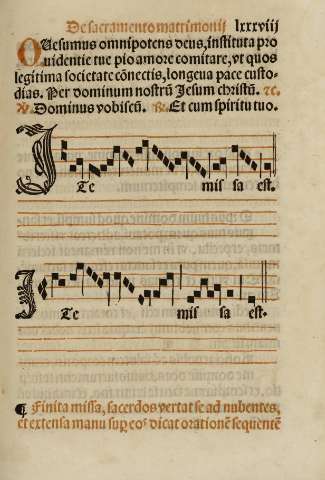 De sacramento matrimonij lxxxviij
Quesumus omnipotens deus, instituta pro
uidentie tue pio amore comitare, vt quos
legitima societate cōnectis, longeua pace custo-
dias. Per dominum nostrū Jesum christū. ⁊c.
℣. Dominus vobiscū. ℟. Et cum spiritu tuo.
J Te mis sa est.
J Te mis sa est.
¶ Finita missa, sacerdos vertat se ad nubentes,
et extensa manu suꝑ eos dicat orationē sequentē